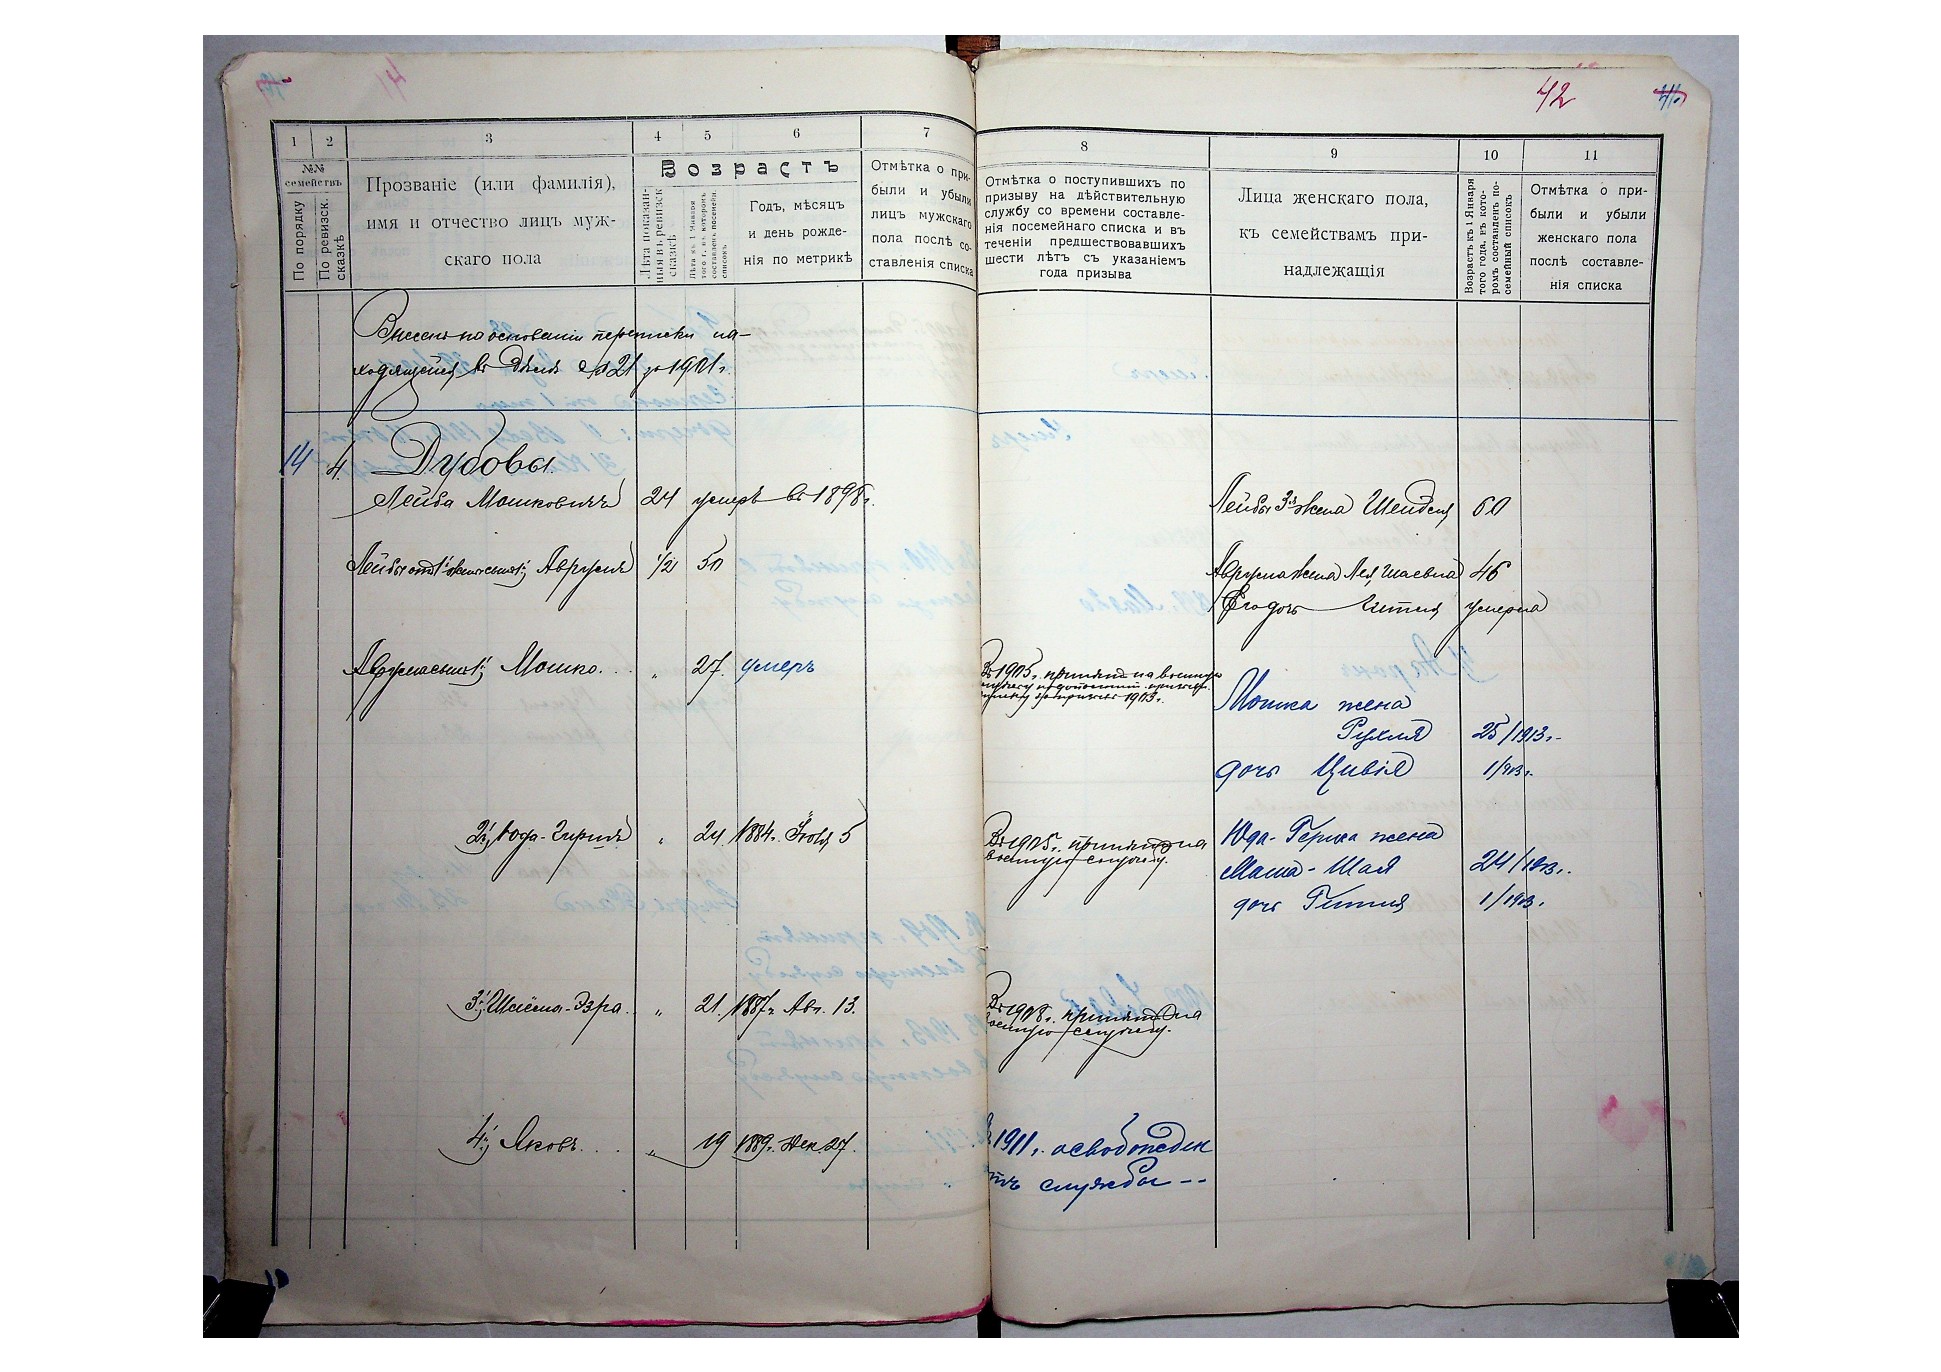 42
1
2
3
4
5
6
7
№№ семействъ
По порядку
По ревизск. сказкѣ
Прозваніе (или фамилія),
имя и отчество лицъ муж-
скаго пола
Возрастъ
Лѣта показан-
ныя въ ревизск.
сказкѣ
Лѣта къ 1 Января
того г., на которомъ
составленъ посемейн.
списокъ
Годъ, мѣсяцъ
и день рожде-
нія по метрикѣ
Отмѣтка о при-
были и убыли
лицъ мужскаго
пола послѣ со-
ставленія списка
8
9
10
11
Отмѣтка о поступившихъ по
призыву на дѣйствительную
службу со времени составле-
нія посемейнаго списка и въ
теченіи предшествовавшихъ
шести лѣтъ съ указаніемъ
года призыва
Лица женскаго пола,
къ семействамъ при-
надлежащія
Возрастъ къ 1 Января
того года, въ кото-
ромъ составленъ по-
семейный списокъ
Отмѣтка о при-
были и убыли
женскаго пола
послѣ составле-
нія списка
Внесенъ на основаніи переписки на-
ходящейся въ дѣлѣ № 21 за 1901 г.
14 4. Дубовы
Лейба Мошковичъ 24 умеръ въ 1898 г.
Лейбы 3я жена Шейдля 60
Лейбы отъ 1й жены сынъ 1й Аврумъ 1/2 50
Аврума жена Лея Шаевна 46
Его дочь Гитля умерла
Аврума сынъ 1й Мошко . . . „ 27. умеръ
Въ 1905 г. принятъ на военную
1903 г.
Мошка жена
Рухля 25/1913 г.
дочь Цивія 1/913 г.
2й Юда-Гиршъ „ 24 1884 г. Іюля 5
Въ 1905 г. принятъ на
военную службу.
Юда-Герша жена
Маша-Шая 24/1913 г.
дочь Гитля 1/1913 г.
3й Шлёма-Эзра. „ 21. 1887 г. Авг. 13.
Въ 1908 г. принятъ на
военную службу.
4й Яковъ. . . . „ 19 1889 г. Дек. 27.
Въ 1911 г. освобожден
отъ службы --